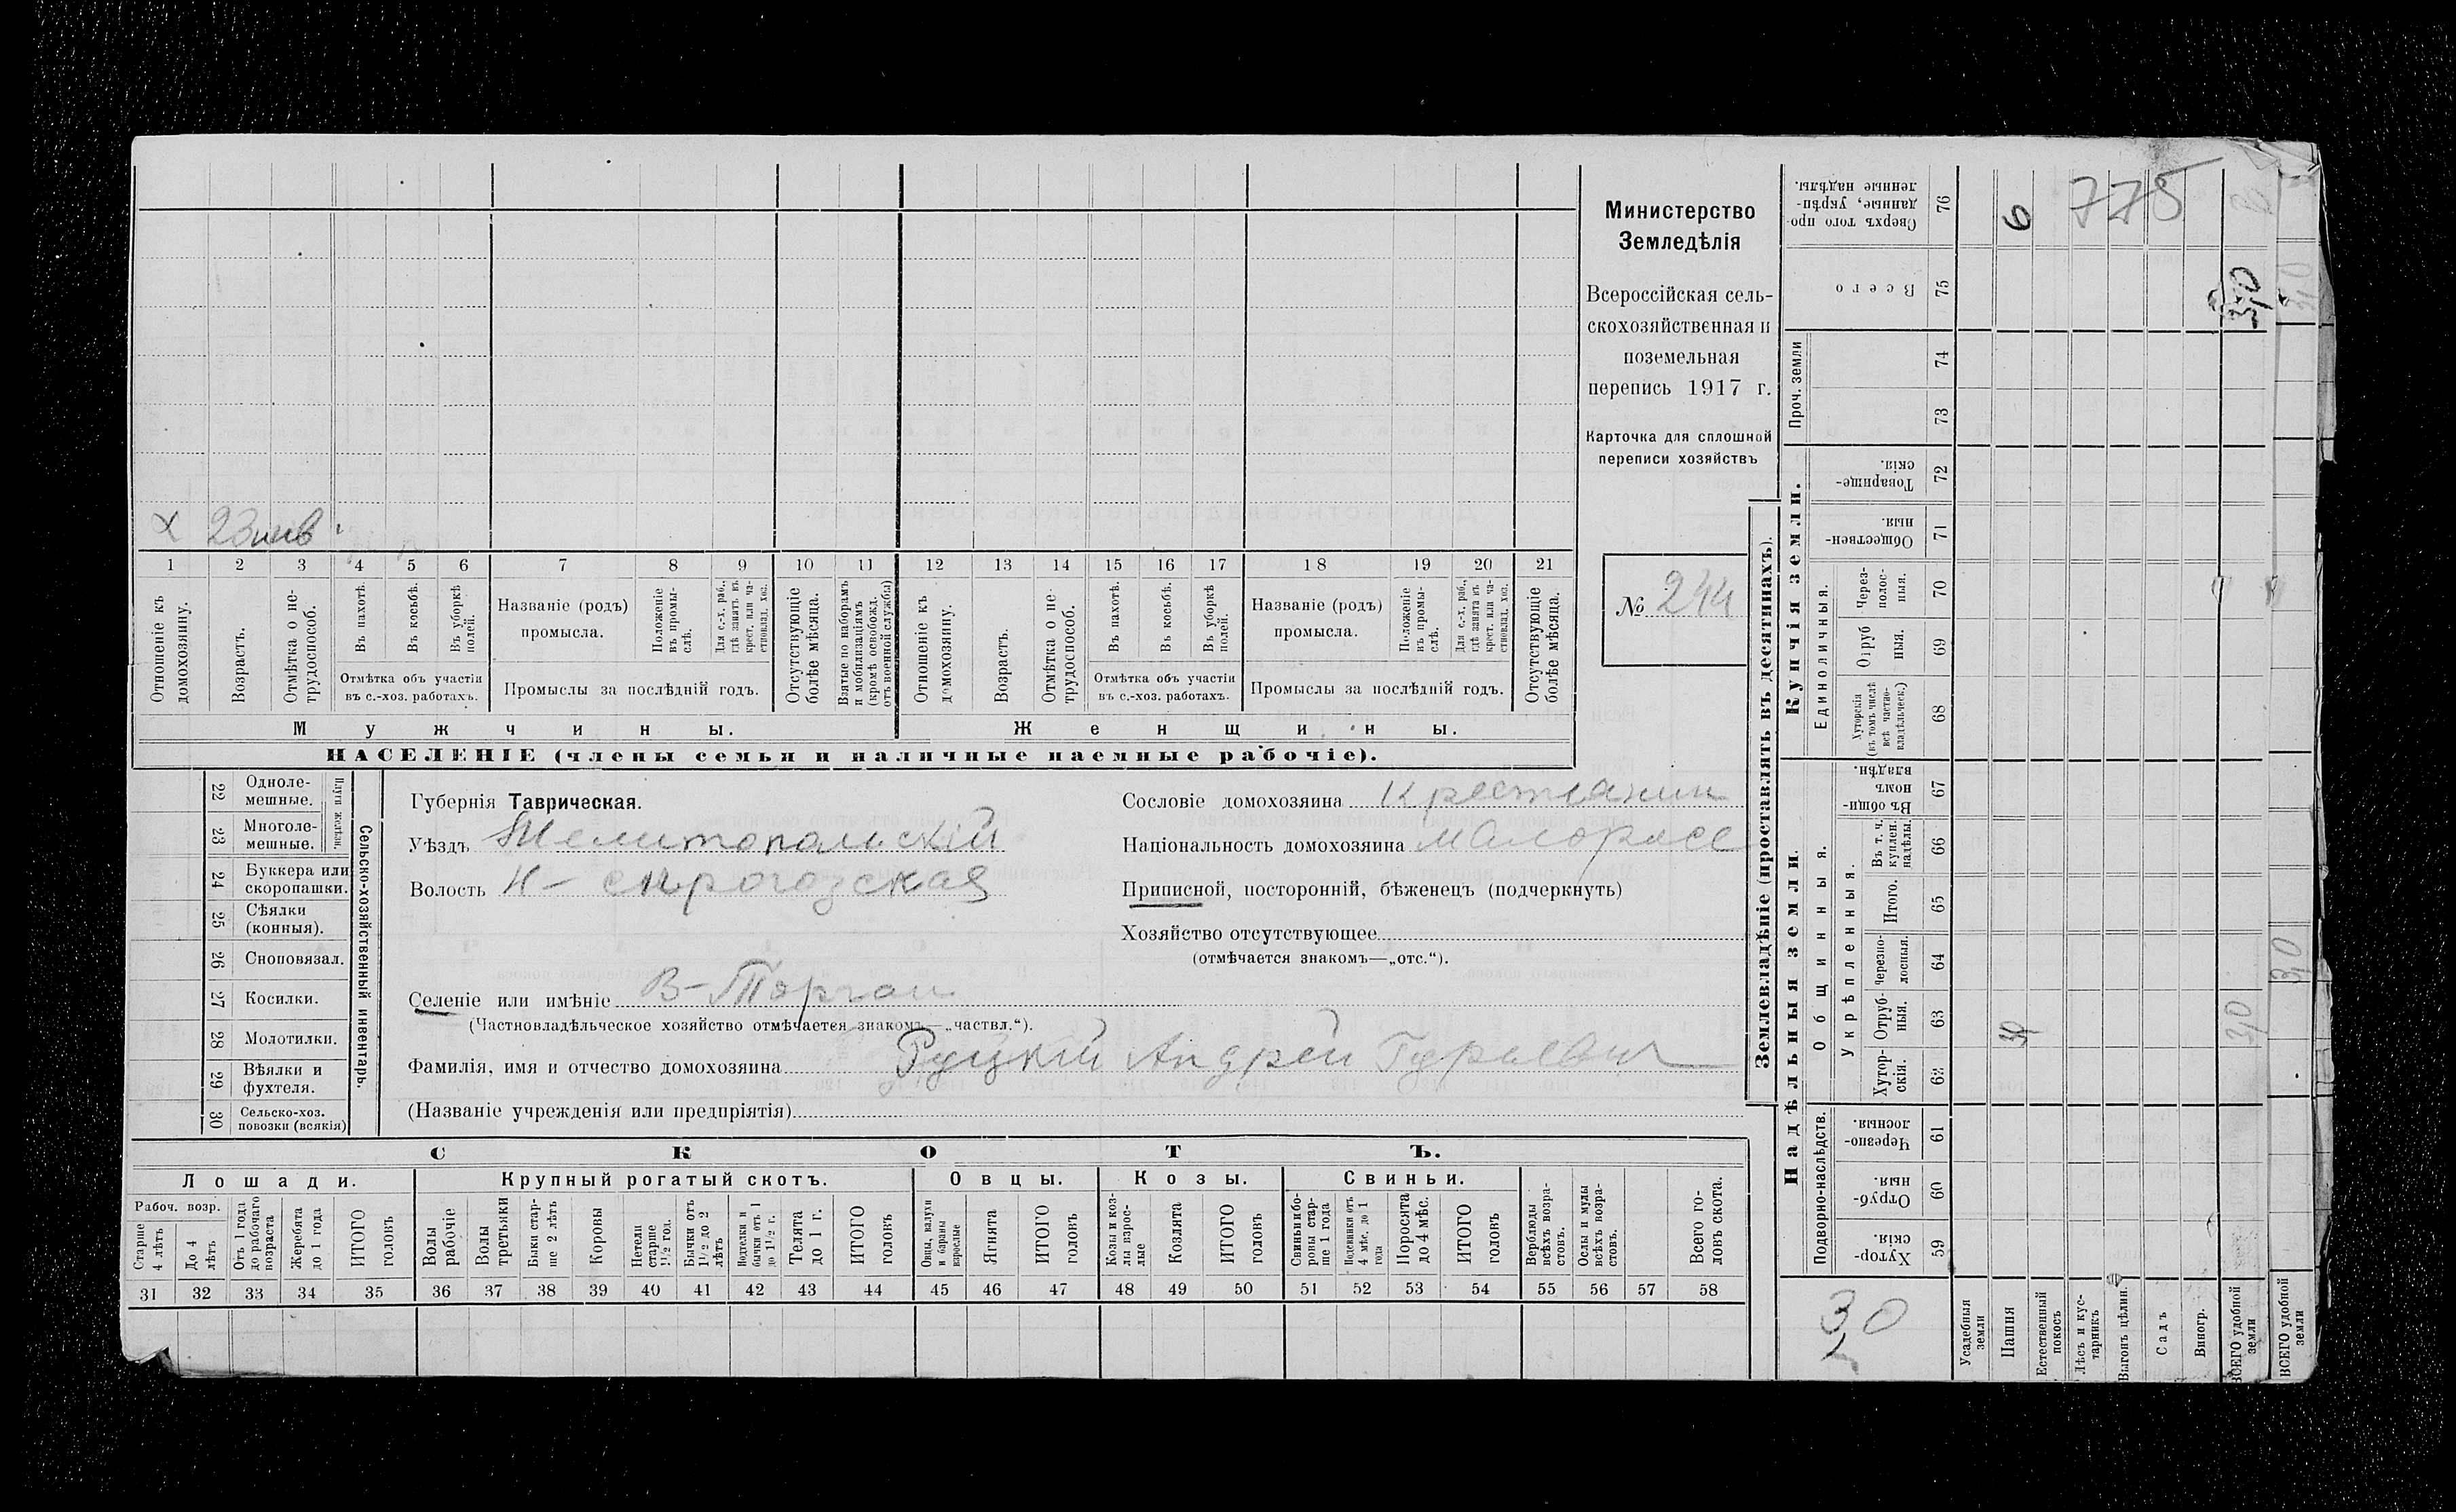 Министерство
Земледѣлія
Всероссійская сель-
скохозяйственная и
поземельная
перепись 1917 г.
Карточка для сплошной
переписи хозяйствъ
№ 244
х 23
1 2 3 4 5 6 7 8 9 10 11 12 13 14 15 16 17 18 19 20 21
Отношеніе къ домохозяину.
Возрастъ.
Отмѣтка о не-трудоспособ.
Въ пахотѣ.
Въ косьбѣ.
Въ уборкѣ полей.
Отмѣтка объ участіи
въ с.-хоз. работахъ.
Названіе (родъ)
промысла.
Положеніе въ промы-слѣ.
Для с.-х. раб., гдѣ занятъ въ крест. или ча-стновлад. хоз.
Промыслы за послѣдній годъ.
Отсутствующіе болѣе мѣсяца.
Взятые по наборамъ и мобилизаціямъ (кромѣ освобожд. отъ военной службы)
Отношеніе къ домохозяину.
Возрастъ.
Отмѣтка о не-трудоспособ.
Въ пахотѣ.
Въ косьбѣ.
Въ уборкѣ полей.
Отмѣтка объ участіи
въ с.-хоз. работахъ.
Названіе (родъ)
промысла.
Положеніе въ промы-слѣ.
Для с.-х. раб., гдѣ занята въ крест. или ча-стновлад. хоз.
Промыслы за послѣдній годъ.
Отсутствующіе болѣе мѣсяца.
Мужчины. Женщины.
НАСЕЛЕНІЕ (члены семьи и наличные наемные рабочіе).
22 Одноле-мешные.
23 Многоле-мешные.
Плуги желѣзн.
24 Буккера или скоропашки.
25 Сѣялки (конныя).
26 Сноповязал.
27 Косилки.
28 Молотилки.
29 Вѣялки и фухтеля.
30 Сельско-хоз. повозки (всякія)
Сельско-хозяйственный инвентарь.
Губернія Таврическая.
Уѣздъ Мелитопольскій
Волость Н-
Селеніе или имѣніе В-Торгаи
(Частновладѣльческое хозяйство отмѣчается знакомъ—„частвл.“).
Фамилія, имя и отчество домохозяина Руцкій Андрей Гурьевич
(Названіе учрежденія или предпріятія)
Сословіе домохозяина Крестьянин
Національность домохозяина малоросс
Приписной, посторонній, бѣженецъ (подчеркнуть)
Хозяйство отсутствующее
(отмѣчается знакомъ—„отс.“).
СКОТЪ.
Лошади. Крупный рогатый скотъ. Овцы. Козы. Свиньи.
Рабоч. возр.
Старше 4 лѣтъ
До 4 лѣтъ
Отъ 1 года до рабочаго возраста
Жеребята до 1 года
ИТОГО головъ
Волы рабочіе
Волы третьяки
Быки стар-ше 2 лѣтъ
Коровы
Нетели старше 1½ год.
Бычки отъ 1½ до 2 лѣтъ
Подтелки и бычки отъ 1 до 1½ г.
Телята до 1 г.
ИТОГО головъ
Овцы, валухи и бараны взрослые
Ягнята
ИТОГО головъ
Козы и коз-лы взрос-лые
Козлята
ИТОГО головъ
Свиньи и бо-ровы стар-ше 1 года
Подсвинки отъ 4 мѣс. до 1 года
Поросята до 4 мѣс.
ИТОГО головъ
Верблюды всѣхъ возра-стовъ.
Ослы и мулы всѣхъ возра-стовъ.
Всего го-ловъ скота.
31 32 33 34 35 36 37 38 39 40 41 42 43 44 45 46 47 48 49 50 51 52 53 54 55 56 57 58
Землевладѣніе (проставлять въ десятинахъ).
Сверхъ того про-данные, укрѣп-ленные надѣлы. 76 6
775
Всего 75 30
Проч. земли 74 73
Купчія земли.
Товарище-скія. 72
Обществен-ныя. 71
Единоличныя.
Через-полос-ныя. 70
Отруб-ныя. 69
Хуторскія (въ томъ числѣ всѣ частно-владѣльческ.) 68
Надѣльныя земли.
Общинныя.
Въ общи-номъ владѣн. 67
Укрѣпленныя.
Въ т. ч. куплен. надѣлы. 66
Итого. 65
Черезпо-лосныя. 64
Отруб-ныя. 63 30 30 30
Хутор-скія. 62
Подворно-наслѣдств.
Черезпо-лосныя. 61
Отруб-ныя. 60
Хутор-скія. 59
30
Усадебныя земли
Пашня
Естественный покосъ
Лѣсъ и кус-тарникъ
Выгонъ цѣлин.
Садъ
Виногр.
ВСЕГО удобной земли
ВСЕГО удобной земли